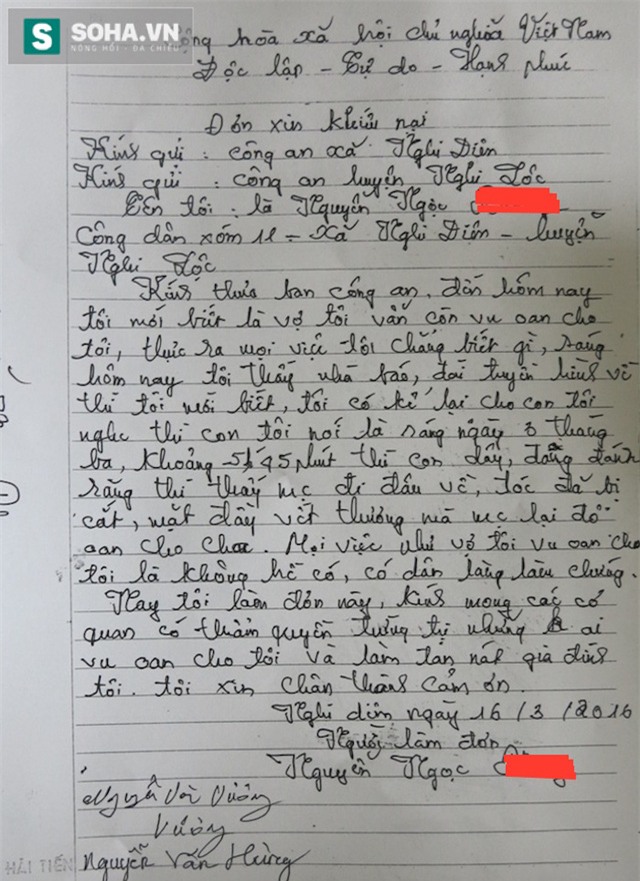 SOHA.VN
NÓNG HỔI - ĐA CHIỀU
Cộng hòa xã hội chủ nghĩa Việt Nam
Độc lập - Tự do - Hạnh phúc
Đơn xin khiếu nại
Kính gửi : công an xã Nghi Diên
Kính gửi : công an huyện Nghi Lộc
Tên tôi : là Nguyễn Ngọc
Công dân xóm 11 - xã Nghi Diên - huyện
Nghi Lộc
Kính thưa ban công an. đến hôm nay
tôi mới biết là vợ tôi vẫn còn vu oan cho
tôi, thực ra mọi việc tôi chẳng biết gì, sáng
hôm nay tôi thấy nhà báo, đài truyền hình về
thì tôi mới biết, tôi có kể lại cho con tôi
nghe thì con tôi nói là sáng ngày 3 tháng
ba, khoảng 5h45 phút thì con dậy, đang đánh
răng thì thấy mẹ đi đâu về, tóc đã bị
cắt, mặt đầy vết thương mà mẹ lại đổ
oan cho cha. Mọi việc như vợ tôi vu oan cho
tôi là không hề có, có dân làng làm chứng.
Nay tôi làm đơn này, kính mong các cơ
quan có thẩm quyền trừng trị những ai
vu oan cho tôi và làm tan nát gia đình
tôi. tôi xin chân thành cảm ơn.
Nghi diên ngày 16 / 3 / 2016
Người làm đơn
Nguyễn Ngọc
Nguyễn Vương
Vương
Nguyễn Văn Hùng
HẢI TIẾN